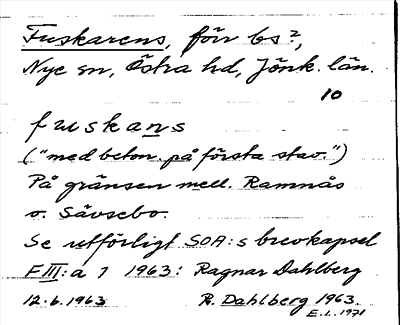 Fuskarens, förr bs?,
Nye sn, Östra hd, Jönk. län.
10
fuskans
("med beton. på första stav.")
På gränsen mell. Ramnås
o. Sävsebo.
Se utförligt SOA:s brevkapsel
F III: a 7 1963: Ragnar Dahlberg
12.6.1963 R. Dahlberg 1963.
E.L. 1971